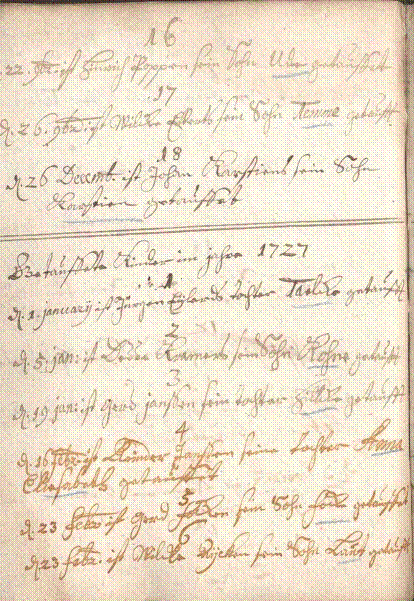 16
22. 9br: ist Hinrich Poppen sein Sohn Ude getauffet
17
d. 26. 9br: ist Wilke Eilerts sein Sohn Temme getaufft
18
d. 26 Decemb: ist Johan Karstiens sein Sohn
Karstien getauffet
Getauffete Kinder im jahre 1727
1
d. 1. january ist Jürgen Eilerds tochter Taelke getaufft
2
d. 5. jan: ist Kramers sein Sohn getaufft
3
d. 19 jan: ist Gerd janssen sein tochter Hilke getaufft
4
d. 16 febr: ist Reiner Janssen seine tochter Anna
Elisabeth getauffet
5
d. 23 febr ist Gerd Folken sein Sohn Folke getauffet
6
d. 23 febr: ist Wilke sein Sohn getaufft